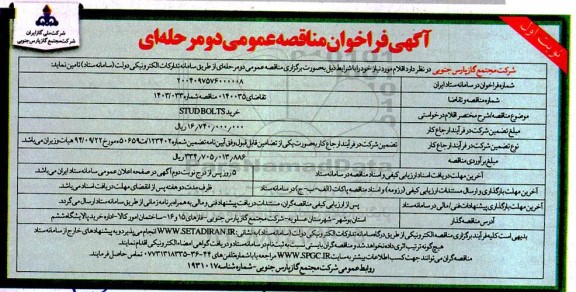 شرکت ملی گاز ایران
شرکت مجتمع گاز پارس جنوبی
نوبت اول
آگهی فراخوان مناقصه عمومی دو مرحله‌ای
شرکت مجتمع گاز پارس جنوبی در نظر دارد اقلام مورد نیاز خود را با شرایط ذیل به صورت برگزاری مناقصه عمومی دو مرحله‌ای از طریق سامانه تدارکات الکترونیکی دولت (سامانه ستاد) تامین نماید:
شماره فراخوان در سامانه ستاد ایران
شماره مناقصه و تقاضا تقاضای ۰۱۴۰۰۳۵ مناقصه شماره ۱۴۰۲/۰۳۳
موضوع مناقصه/شرح مختصر اقلام درخواستی خرید STUD BOLTS
مبلغ تضمین شرکت در فرآیند ارجاع کار ۱۶/۷۴۰/۰۰۰/۰۰۰ ریال
نوع تضمین شرکت در فرآیند ارجاع کار به صورت یکی از تضامین قابل قبول وفق آیین نامه تضمین شماره ۱۲۳۴۰۲/ت۵۰۶۵۹ه مورخ ۹۴/۰۹/۲۲ هیات وزیران می باشد.
مبلغ برآوردی مناقصه ۳۳۴/۷۰۵/۰۱۳/۸۸۶ ریال
آخرین مهلت دریافت اسناد ارزیابی کیفی و اسناد مناقصه در سامانه ستاد ۵ روز پس از درج نوبت دوم آگهی در صفحه اعلان عمومی سامانه ستاد ایران می باشد.
آخرین مهلت بارگذاری و ارسال مستندات ارزیابی کیفی (رزومه) و اسناد مناقصه پاکات (الف-ب-ج) در سامانه ستاد ظرف مدت دو هفته پس از انقضای مهلت دریافت اسناد می باشد.
آخرین مهلت بارگذاری پیشنهادات فنی/مالی در سامانه ستاد پس از ارزیابی کیفی مناقصه گران، مستندات دریافت پیشنهاد فنی و مالی به همراه برنامه زمانی از طریق سامانه ستاد ارسال می گردد.
آدرس مناقصه گذار استان بوشهر - شهرستان عسلویه - شرکت مجتمع گاز پارس جنوبی - فازهای ۱۵ و ۱۶ - ساختمان امور کالا - اداره خرید پالایشگاه ششم
بدیهی است کلیه فرآیند برگزاری مناقصه الکترونیکی از طریق درگاه سامانه تدارکات الکترونیکی دولت (سامانه ستاد) به نشانی: WWW.SETADIRAN.IR انجام می پذیرد و به پیشنهادهای خارج از سامانه ستاد
هیچ گونه ترتیب اثری داده نخواهد شد و مناقصه گران بایستی نسبت به ثبت نام در سامانه ستاد و دریافت گواهی امضاء الکترونیکی اقدام نمایند.
مناقصه گران می توانند جهت کسب اطلاعات بیشتر به سایت WWW.SPGC.IR مراجعه یا با شماره تلفن های ۴۴-۳۶-۰۷۷۳۱۳۱۸۳۳۵ تماس حاصل فرمایند.
روابط عمومی شرکت مجتمع گاز پارس جنوبی - شماره شناسه ۱۹۳۱۰۱۷